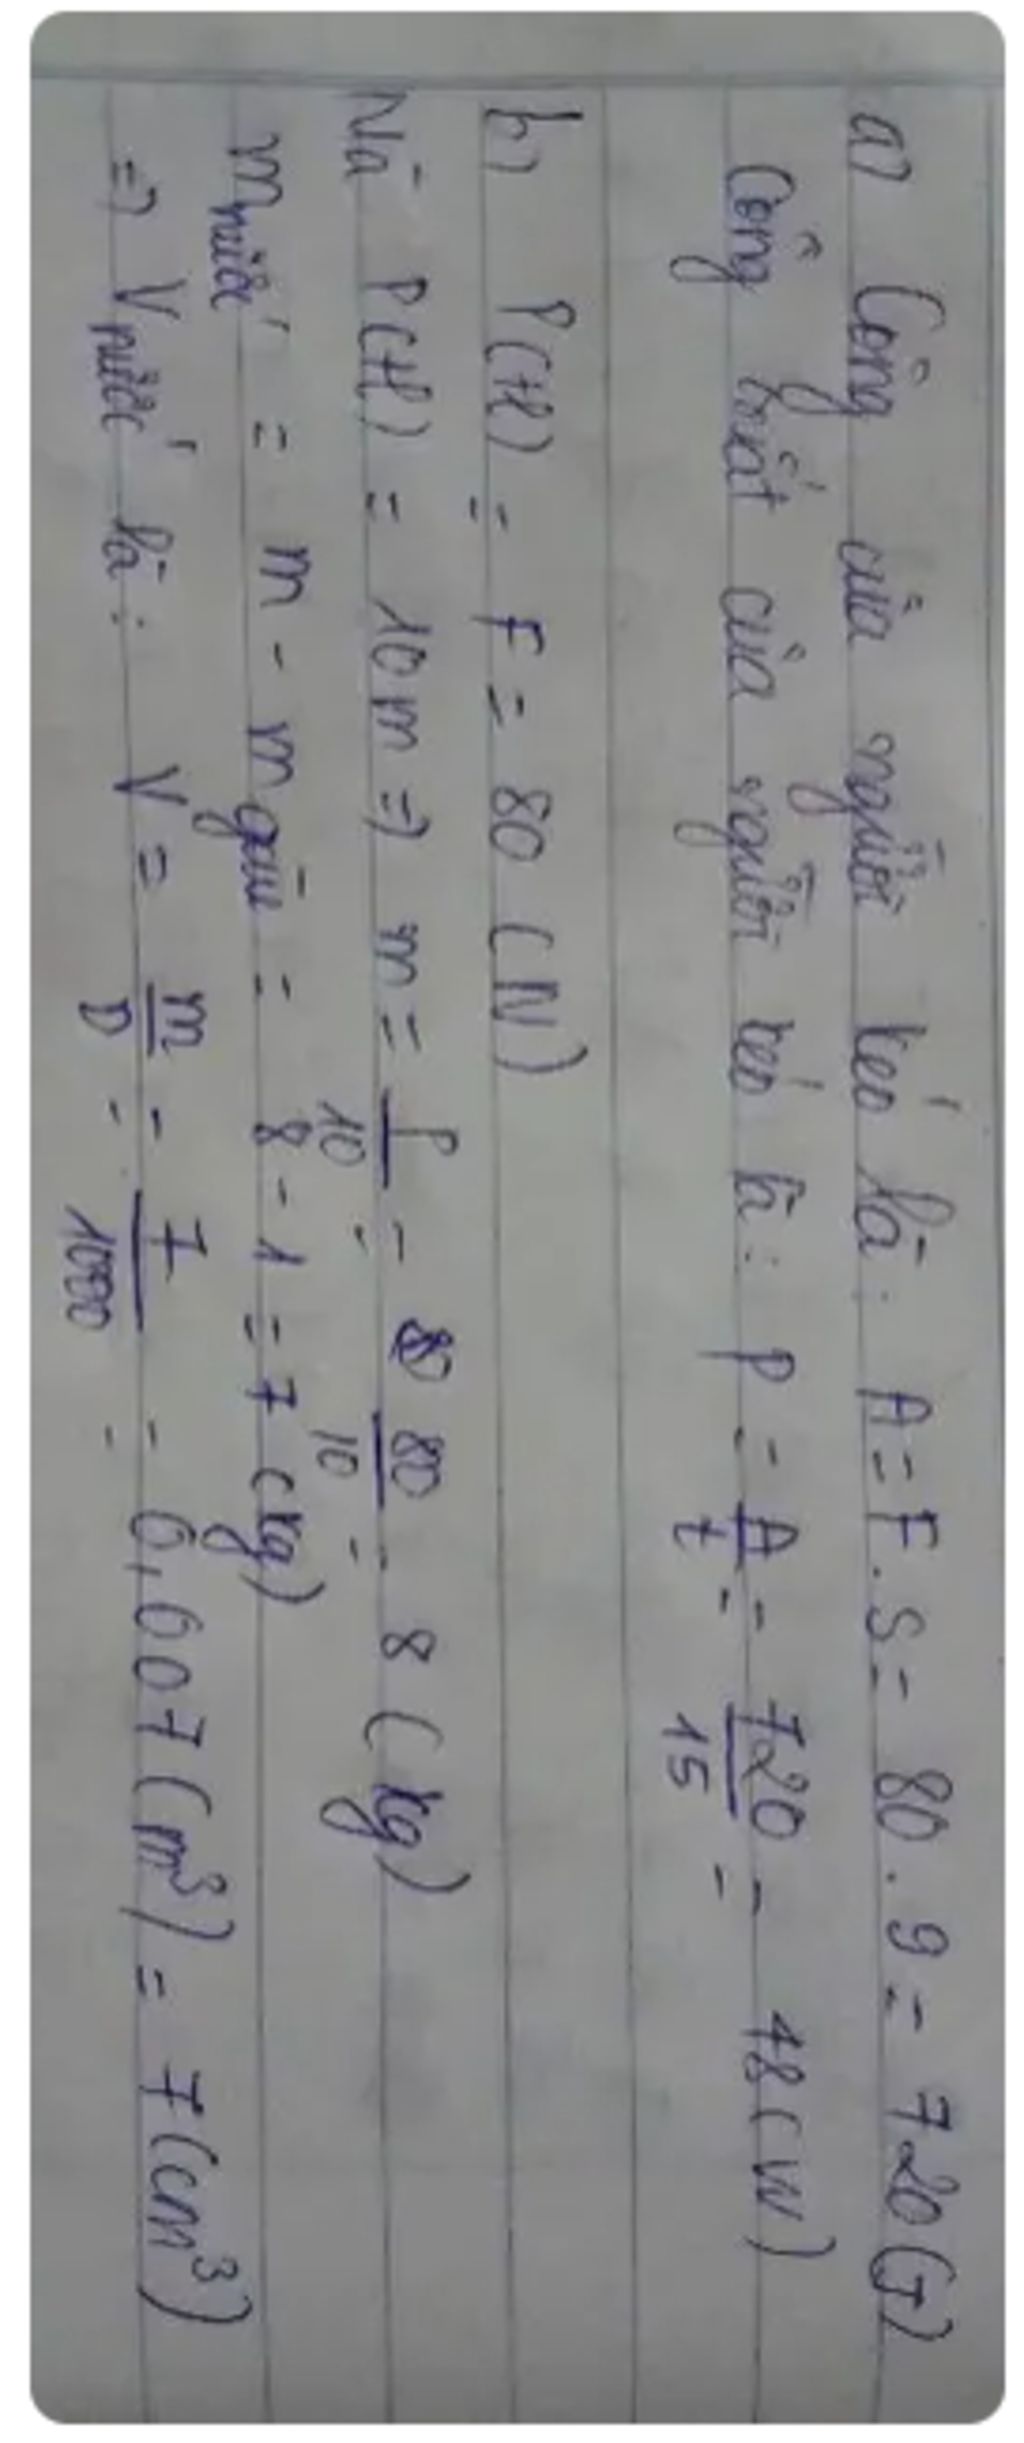 a) Công của người kéo là: A = F.S = 80.9 = 720 (J)
Công suất của người kéo là: P = A/t = 720/15 = 48 (W)
b) P(H) = F = 80 (N)
Mà P(H) = 10m => m = P/10 = 80/10 = 8 (kg)
m nước = m - m gàu = 8 - 1 = 7 (kg)
=> V nước là: V = m/D = 7/1000 = 0,007 (m³) = 7 (cm³)